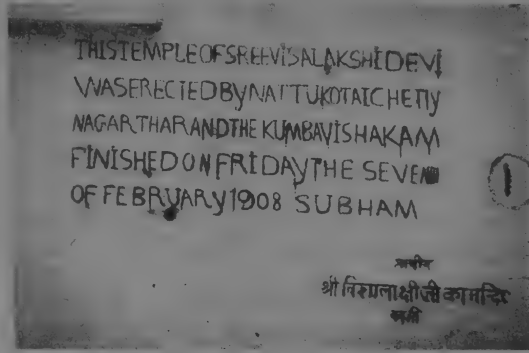 THIS TEMPLE OF SREEVISALAKSHI DEVI
WAS ERECTED BY NATTUKOTAI CHETTY
NAGARTHAR AND THE KUMBAVISHAKAM
FINISHED ON FRIDAY THE SEVEN
OF FEBRUARY 1908 SUBHAM
प्राचीन
श्री विशालाक्षी जी का मन्दिर